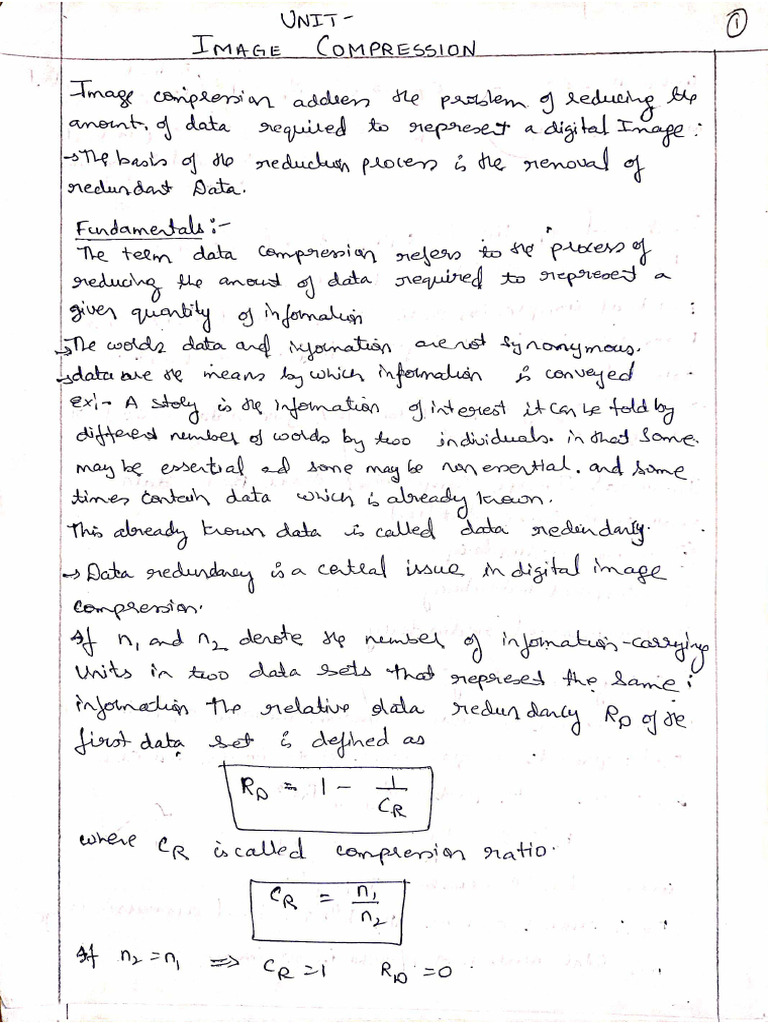 UNIT-
①
IMAGE COMPRESSION
Image compression address the problem of reducing the
amount. of data required to represent a digital Image:
→ The basis of the reduction process is the removal of
redundant Data.
Fundamentals:-
The term data compression refers to the process of
reducing the amount of data required to represent a
given quantity of information
→ The words data and information are not synonymous.
→ data are the means by which information is conveyed
Ex:- A story is the information of interest it can be told by
different number of words by two individuals. in that some
may be essential ad some may be non essential. and some
times contain data which is already known.
This already known data is called data redundancy.
→ Data redundancy is a central issue in digital image
compression.
If n₁ and n₂ denote the number of information-carrying
units in two data sets that represent the same
information the relative data redundancy R_D of the
first data set is defined as
R_D = 1 - 1/C_R
where C_R is called compression ratio.
C_R = n₁/n₂
If n₂ = n₁ ⇒ C_R = 1 R_D = 0